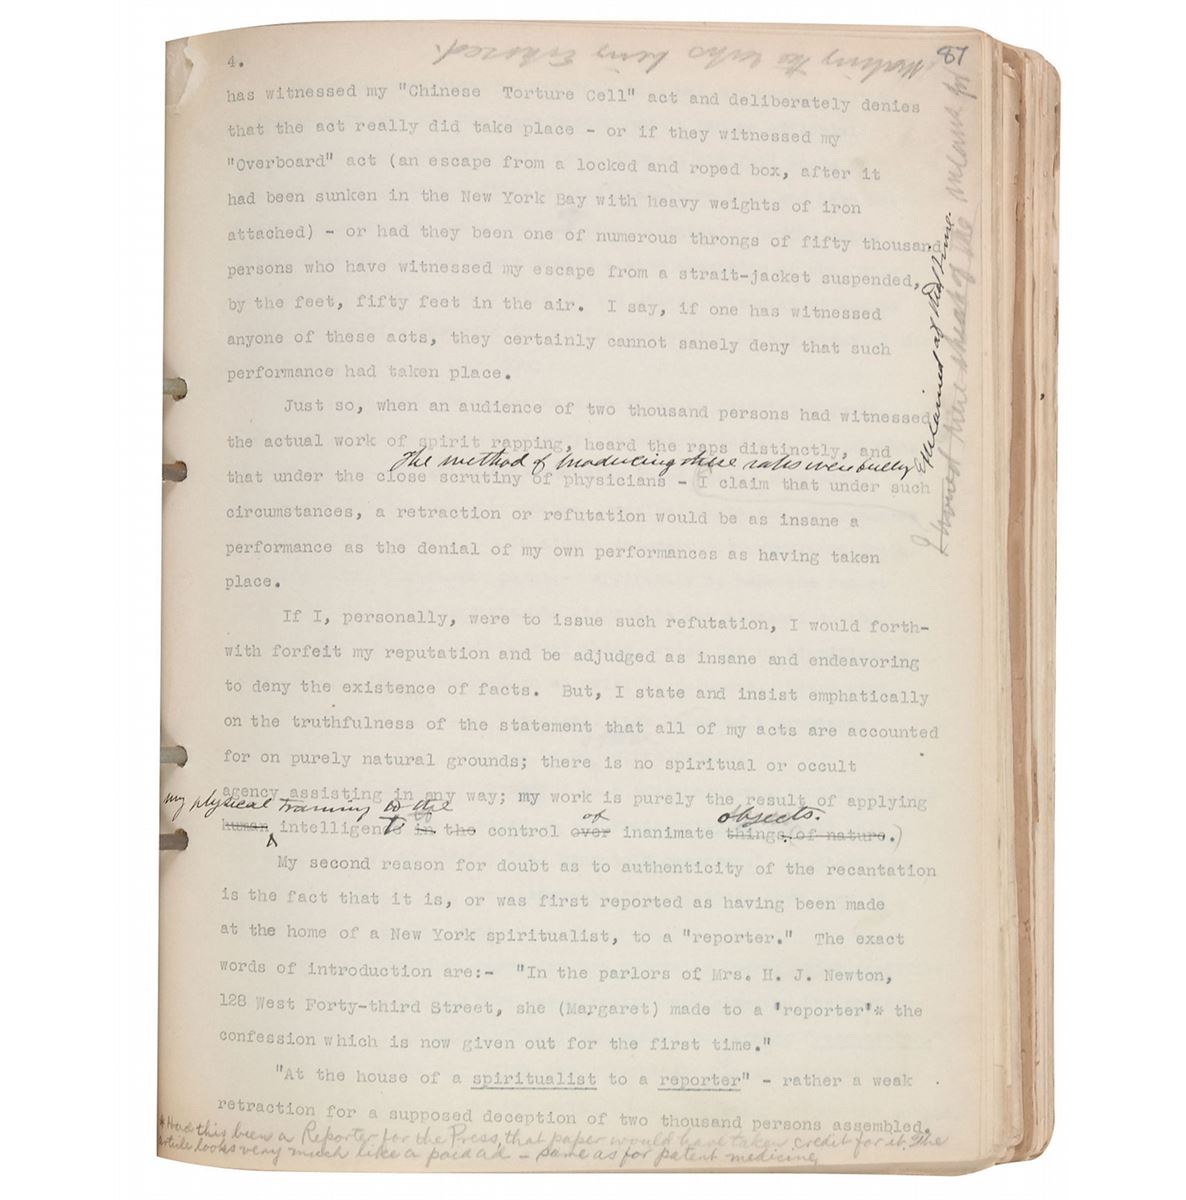 4.
87
has witnessed my "Chinese Torture Cell" act and deliberately denies
that the act really did take place - or if they witnessed my
"Overboard" act (an escape from a locked and roped box, after it
had been sunken in the New York Bay with heavy weights of iron
attached) - or had they been one of numerous throngs of fifty thousand
persons who have witnessed my escape from a strait-jacket suspended,
by the feet, fifty feet in the air. I say, if one has witnessed
anyone of these acts, they certainly cannot sanely deny that such
performance had taken place.
Just so, when an audience of two thousand persons had witnessed
the actual work of spirit rapping, heard the raps distinctly, and
The method of producing these raps were fully Explained at that time.
that under the close scrutiny of physicians - I claim that under such
circumstances, a retraction or refutation would be as insane a
performance as the denial of my own performances as having taken
place.
If I, personally, were to issue such refutation, I would forth-
with forfeit my reputation and be adjudged as insane and endeavoring
to deny the existence of facts. But, I state and insist emphatically
on the truthfulness of the statement that all of my acts are accounted
for on purely natural grounds; there is no spiritual or occult
agency assisting in any way; my work is purely the result of applying
my physical training to the of objects.
human intelligence in the control over inanimate things (of nature.)
My second reason for doubt as to authenticity of the recantation
is the fact that it is, or was first reported as having been made
at the home of a New York spiritualist, to a "reporter." The exact
words of introduction are:- "In the parlors of Mrs. H. J. Newton,
128 West Forty-third Street, she (Margaret) made to a 'reporter'* the
confession which is now given out for the first time."
"At the house of a spiritualist to a reporter" - rather a weak
retraction for a supposed deception of two thousand persons assembled.
*Had this been a Reporter for the Press, that paper would have taken credit for it. The
article looks very much like a paid ad - same as for patent medicine